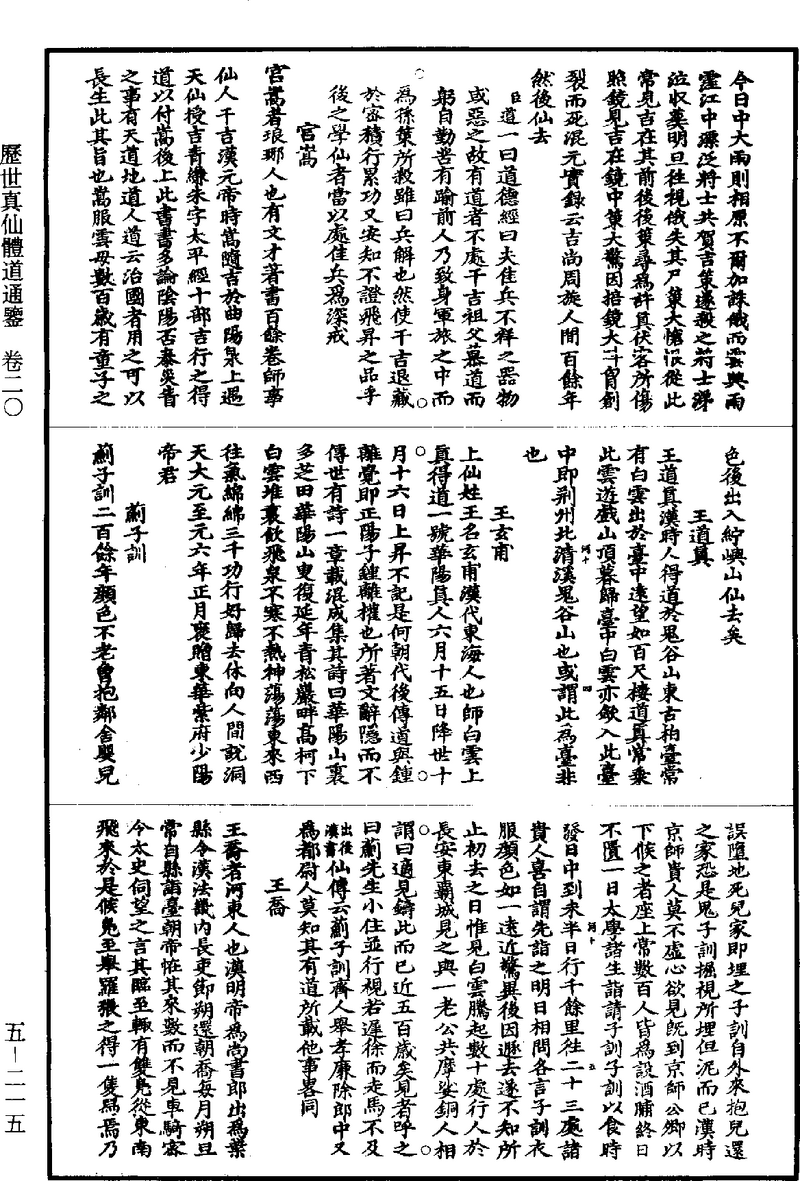 今日中大雨則相原不爾加誅俄而雲興雨
霪江中漂泛將士共賀吉策遂殺之將士涕
泣收葬明旦往視俄失其尸策大愴恨從此
常見吉在其前後後策尋為許貢伏客所傷
照鏡見吉在鏡中策大驚因掊鏡大叫胷創
裂而死混元實錄云吉尚周旋人間百餘年
然後仙去
臣道一曰道德經曰夫佳兵不祥之器物
或惡之故有道者不處干吉祖父慕道而
躬自勤苦有踰前人乃致身軍旅之中而
為孫策所殺雖曰兵解也然使干吉退藏
於密積行累功又安知不證飛昇之品乎
後之學仙者當以處佳兵為深戒
宮嵩
宮嵩者琅琊人也有文才著書百餘卷師事
仙人干吉漢元帝時嵩隨吉於曲陽泉上遇
天仙授吉青縑朱字太平經十部吉行之得
道以付嵩後上此書書多論陰陽否泰災眚
之事有天道地道人道云治國者用之可以
長生此其旨也嵩服雲母數百歲有童子之
色後出入紵嶼山仙去矣
王道真
王道真漢時人得道於鬼谷山東古柏臺常
有白雲出於臺中遠望如百尺樓道真常乘
此雲遊戲山頂暮歸臺中白雲亦斂入此臺
中即荊州北清溪鬼谷山也或謂此為臺非
也
王玄甫
上仙姓王名玄甫漢代東海人也師白雲上
真得道一號華陽真人六月十五日降世十
月十六日上昇不記是何朝代後傳道與鍾
離覺即正陽子鍾離權也所著文辭隱而不
傳世有詩一章載混成集其詩曰華陽山裏
多芝田華陽山叟復延年青松巖畔高柯下
白雲堆裏飲飛泉不寒不熱神蕩蕩東來西
往氣綿綿三千功行好歸去休向人間說洞
天大元至元六年正月褒贈東華紫府少陽
帝君
薊子訓
薊子訓二百餘年顏色不老曾抱鄰舍嬰兒
誤墮地死兒家即埋之子訓自外來抱兒還
之家恐是鬼子訓掘視所埋但泥而已漢時
京師貴人莫不虛心欲見既到京師公卿以
下候之者座上常數百人皆為設酒脯終日
不匱一日太學諸生詣請子訓子訓以食時
發日中到未半日行千餘里往二十三處諸
貴人喜自謂先詣之明日相問各言子訓衣
服顏色如一遠近驚異後因遁去遂不知所
止初去之日惟見白雲騰起數十處行人於
長安東霸城見之與一老公共摩挲銅人相
謂曰適見鑄此而已近五百歲矣見者呼之
曰薊先生小住並行視若遲徐而走馬不及
出後漢書仙傳云薊子訓齊人舉孝廉除郎中又
為都尉人莫知其有道所載他事畧同
王喬
王喬者河東人也漢明帝為尚書郎出為葉
縣令漢法畿內長吏節朔還朝喬每月朔旦
常自縣詣臺朝帝怪其來數而不見車騎密
令太史伺望之言其臨至輒有雙鳧從東南
飛來於是候鳧至舉羅張之得一隻舄焉乃
歷世真仙體道通鑒 卷二〇
五－二一五